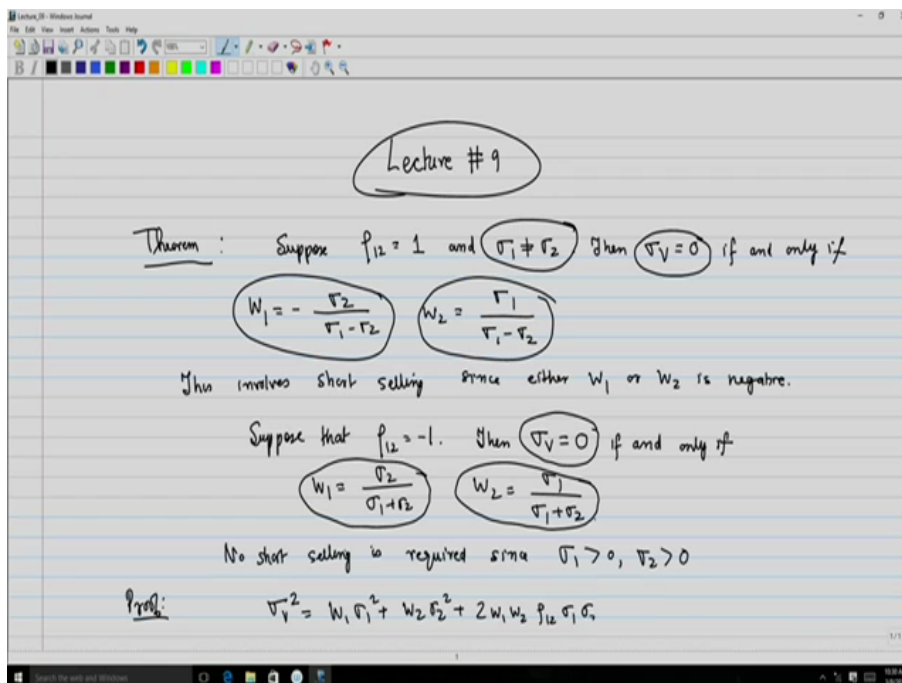 Lecture_09 - Windows Journal
File Edit View Insert Actions Tools Help
B I
Lecture # 9
Theorem : Suppose ρ₁₂ = 1 and σ₁ ≠ σ₂ Then σ_V = 0 if and only if
W₁ = - σ₂ / (σ₁ - σ₂) W₂ = σ₁ / (σ₁ - σ₂)
This involves short selling since either W₁ or W₂ is negative.
Suppose that ρ₁₂ = -1. Then σ_V = 0 if and only if
W₁ = σ₂ / (σ₁ + σ₂) W₂ = σ₁ / (σ₁ + σ₂)
No short selling is required since σ₁ > 0, σ₂ > 0
Proof: σ_V² = W₁ σ₁² + W₂ σ₂² + 2 W₁ W₂ ρ₁₂ σ₁ σ₂
1/1
1
Search the web and Windows